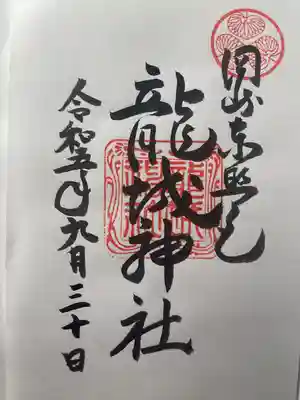 岡崎東照宮
龍城神社
令和五年九月三十日